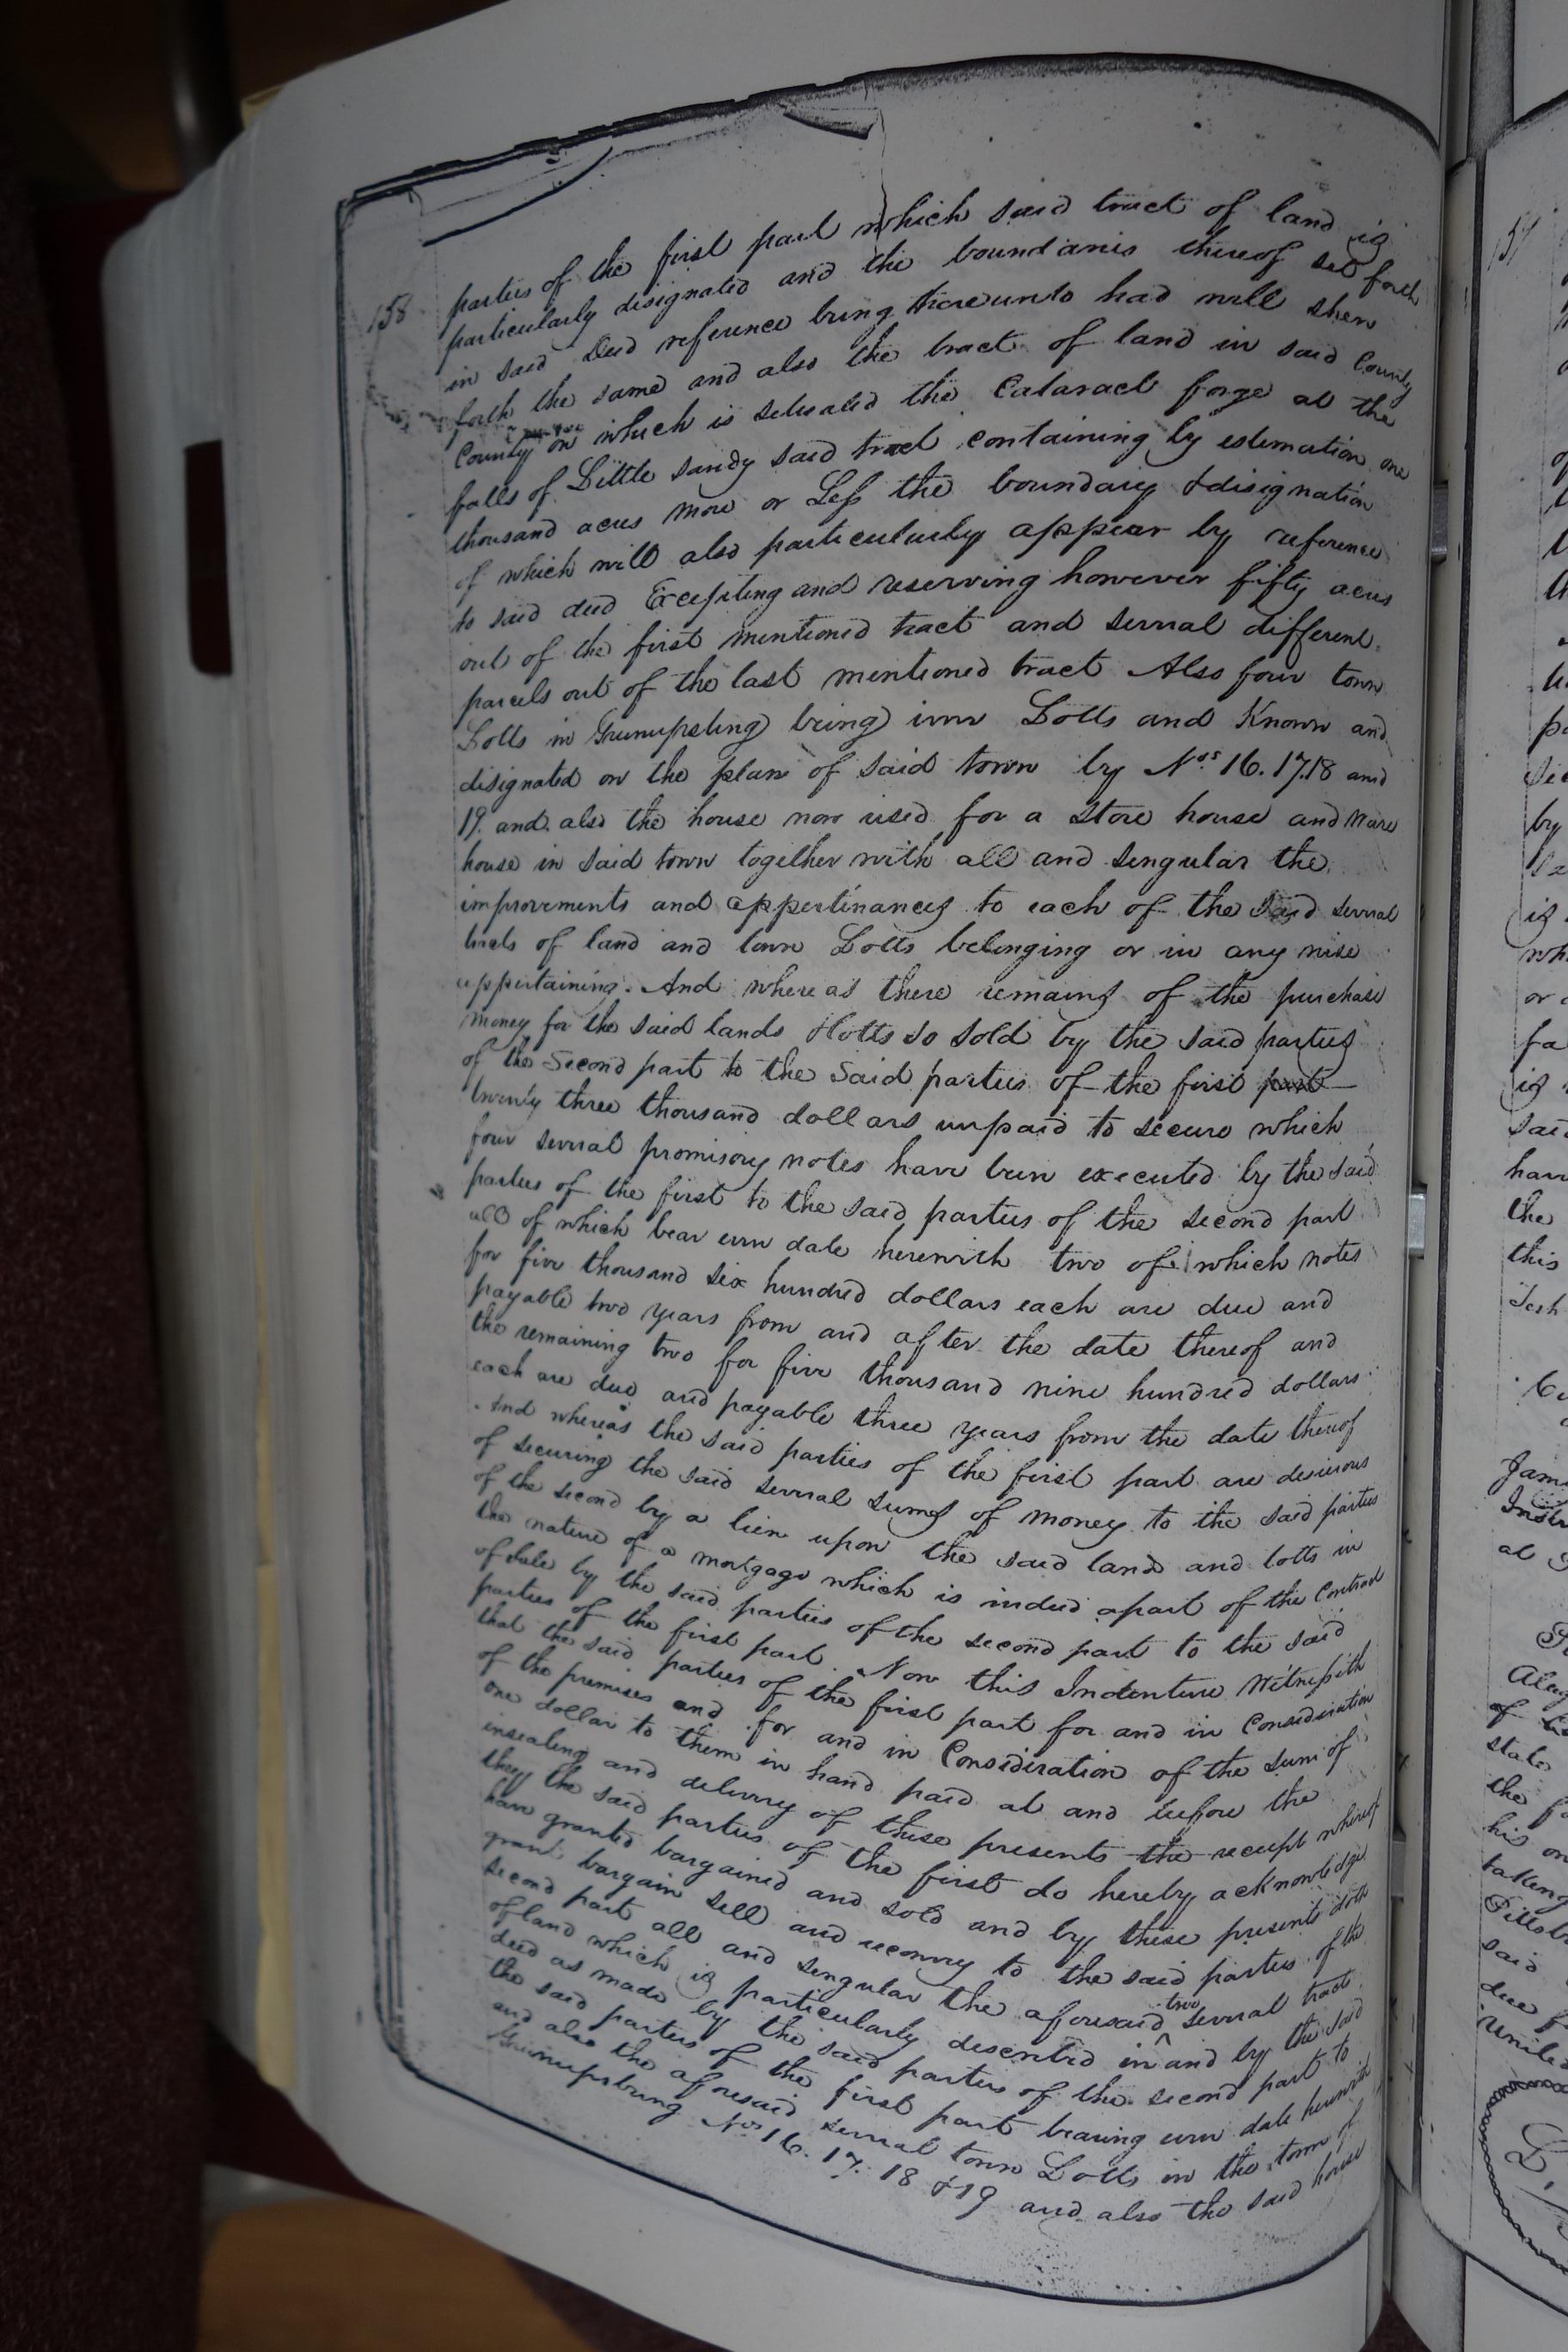 158
parties of the first part which said tract of land is
particularly disignated and the boundaries thereof set forth
in said Deed reference being thereunto had will shew
forth the same and also the tract of land in said County
County on which is setuated the Cataract forge at the
falls of Little Sandy said tract containing by estemation one
thousand acres more or Less the boundary & disignation
of which will also particularly appear by reference
to said deed Excepting and reserving however fifty acres
out of the first mentioned tract and several different
parcels out of the last mentioned tract Also four town
Lotts in Greenupsburg being inn Lotts and Known and
disignated on the plan of said town by Nos 16. 17. 18 and
19. and also the house now used for a store house and ware
house in said town together with all and singular the
improvements and appertinances to each of the said several
tracts of land and town Lotts belonging or in any wise
appertaining. And whereas there remains of the purchase
money for the said lands & lotts so sold by the said parties
of the second part to the said parties of the first part
twenty three thousand dollars unpaid to secure which
four several promisory notes have been executed by the said
parties of the first to the said parties of the second part
all of which bear even date herewith two of which notes
for five thousand six hundred dollars each are due and
payable two years from and after the date thereof and
the remaining two for five thousand nine hundred dollars
each are due and payable three years from the date thereof
And whereas the said parties of the first part are desirous
of securing the said several sums of money to the said parties
of the second by a lien upon the said land and lotts in
the nature of a mortgage which is indeed apart of the Contract
of Sale by the said parties of the second part to the said
parties of the first part. Now this Indenture Witnesseth
that the said parties of the first part for and in Consideration
of the premises and for and in Consideration of the sum of
one dollar to them in hand paid at and before the
insealing and delivery of these presents the receipt whereof
they the said parties of the first do hereby acknowledge
have granted bargained and sold and by these presents doth
grant bargain sell and reconvey to the said parties of the
second part all and singular the aforesaid two several tracts
of land which is particularly described in and by the said
deed as made by the said parties of the second part to
the said parties of the first part bearing even date herewith
and also the aforesaid several town Lotts in the town of
Greenupsburg Nos 16. 17. 18 & 19 and also the said house
157